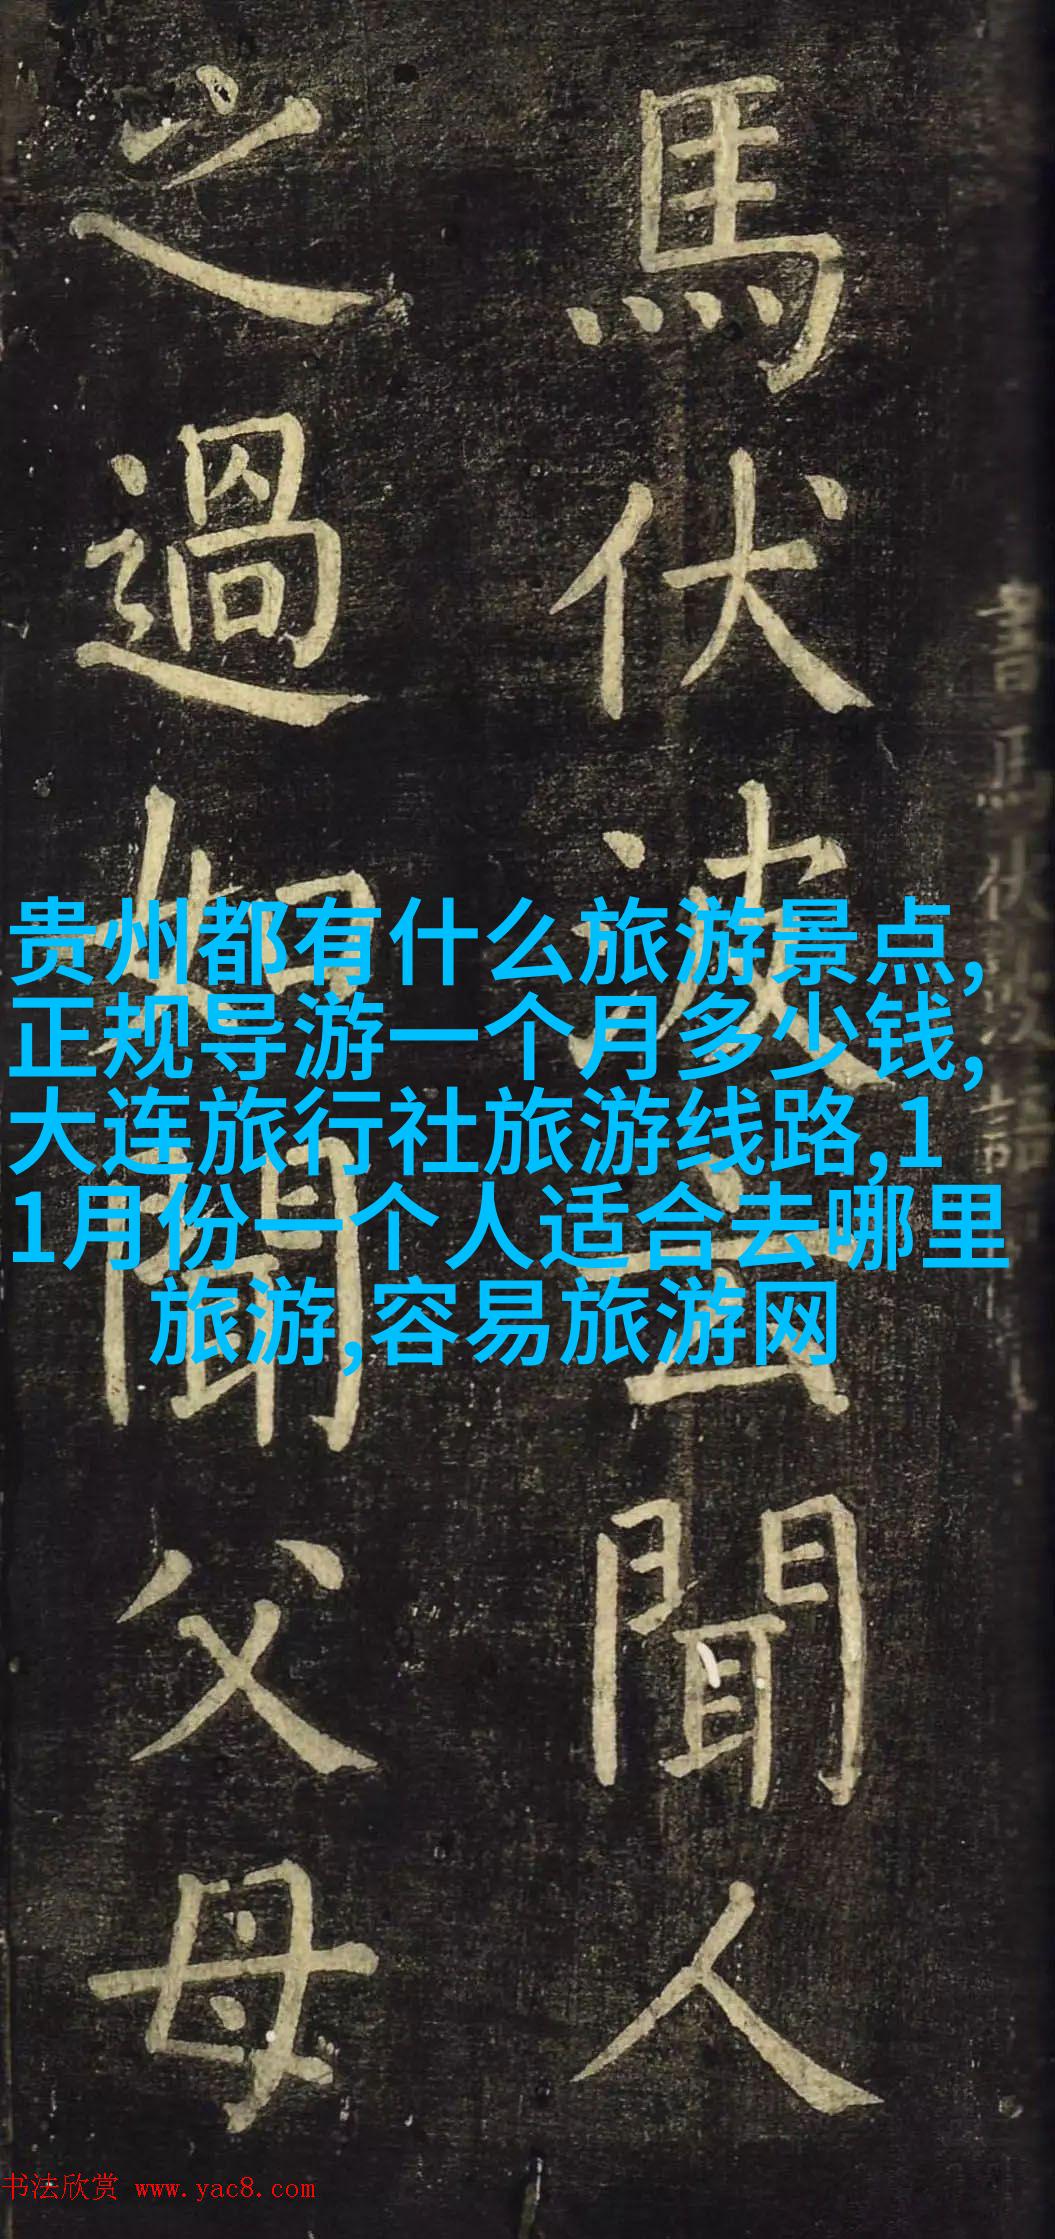 馬伏波云聞人
之過如聞父母
贵州都有什么旅游景点,
正规导游一个月多少钱,
大连旅行社旅游线路,1
1月份一个人适合去哪里
旅游,容易旅游网
书法欣赏 www.yac8.com